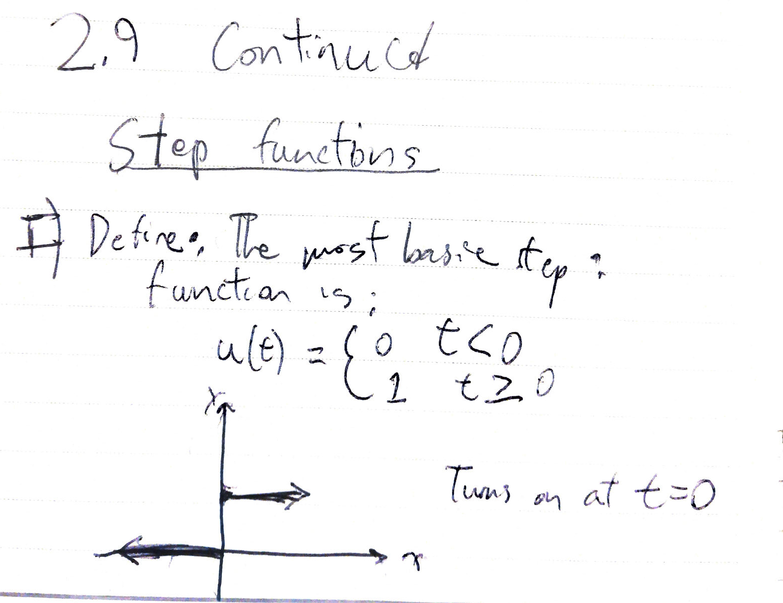 2.9 Continued
Step functions
I) Define: The most basic step:
function is:
u(t) = { 0 t < 0
1 t ≥ 0
y
Turns on at t=0
x